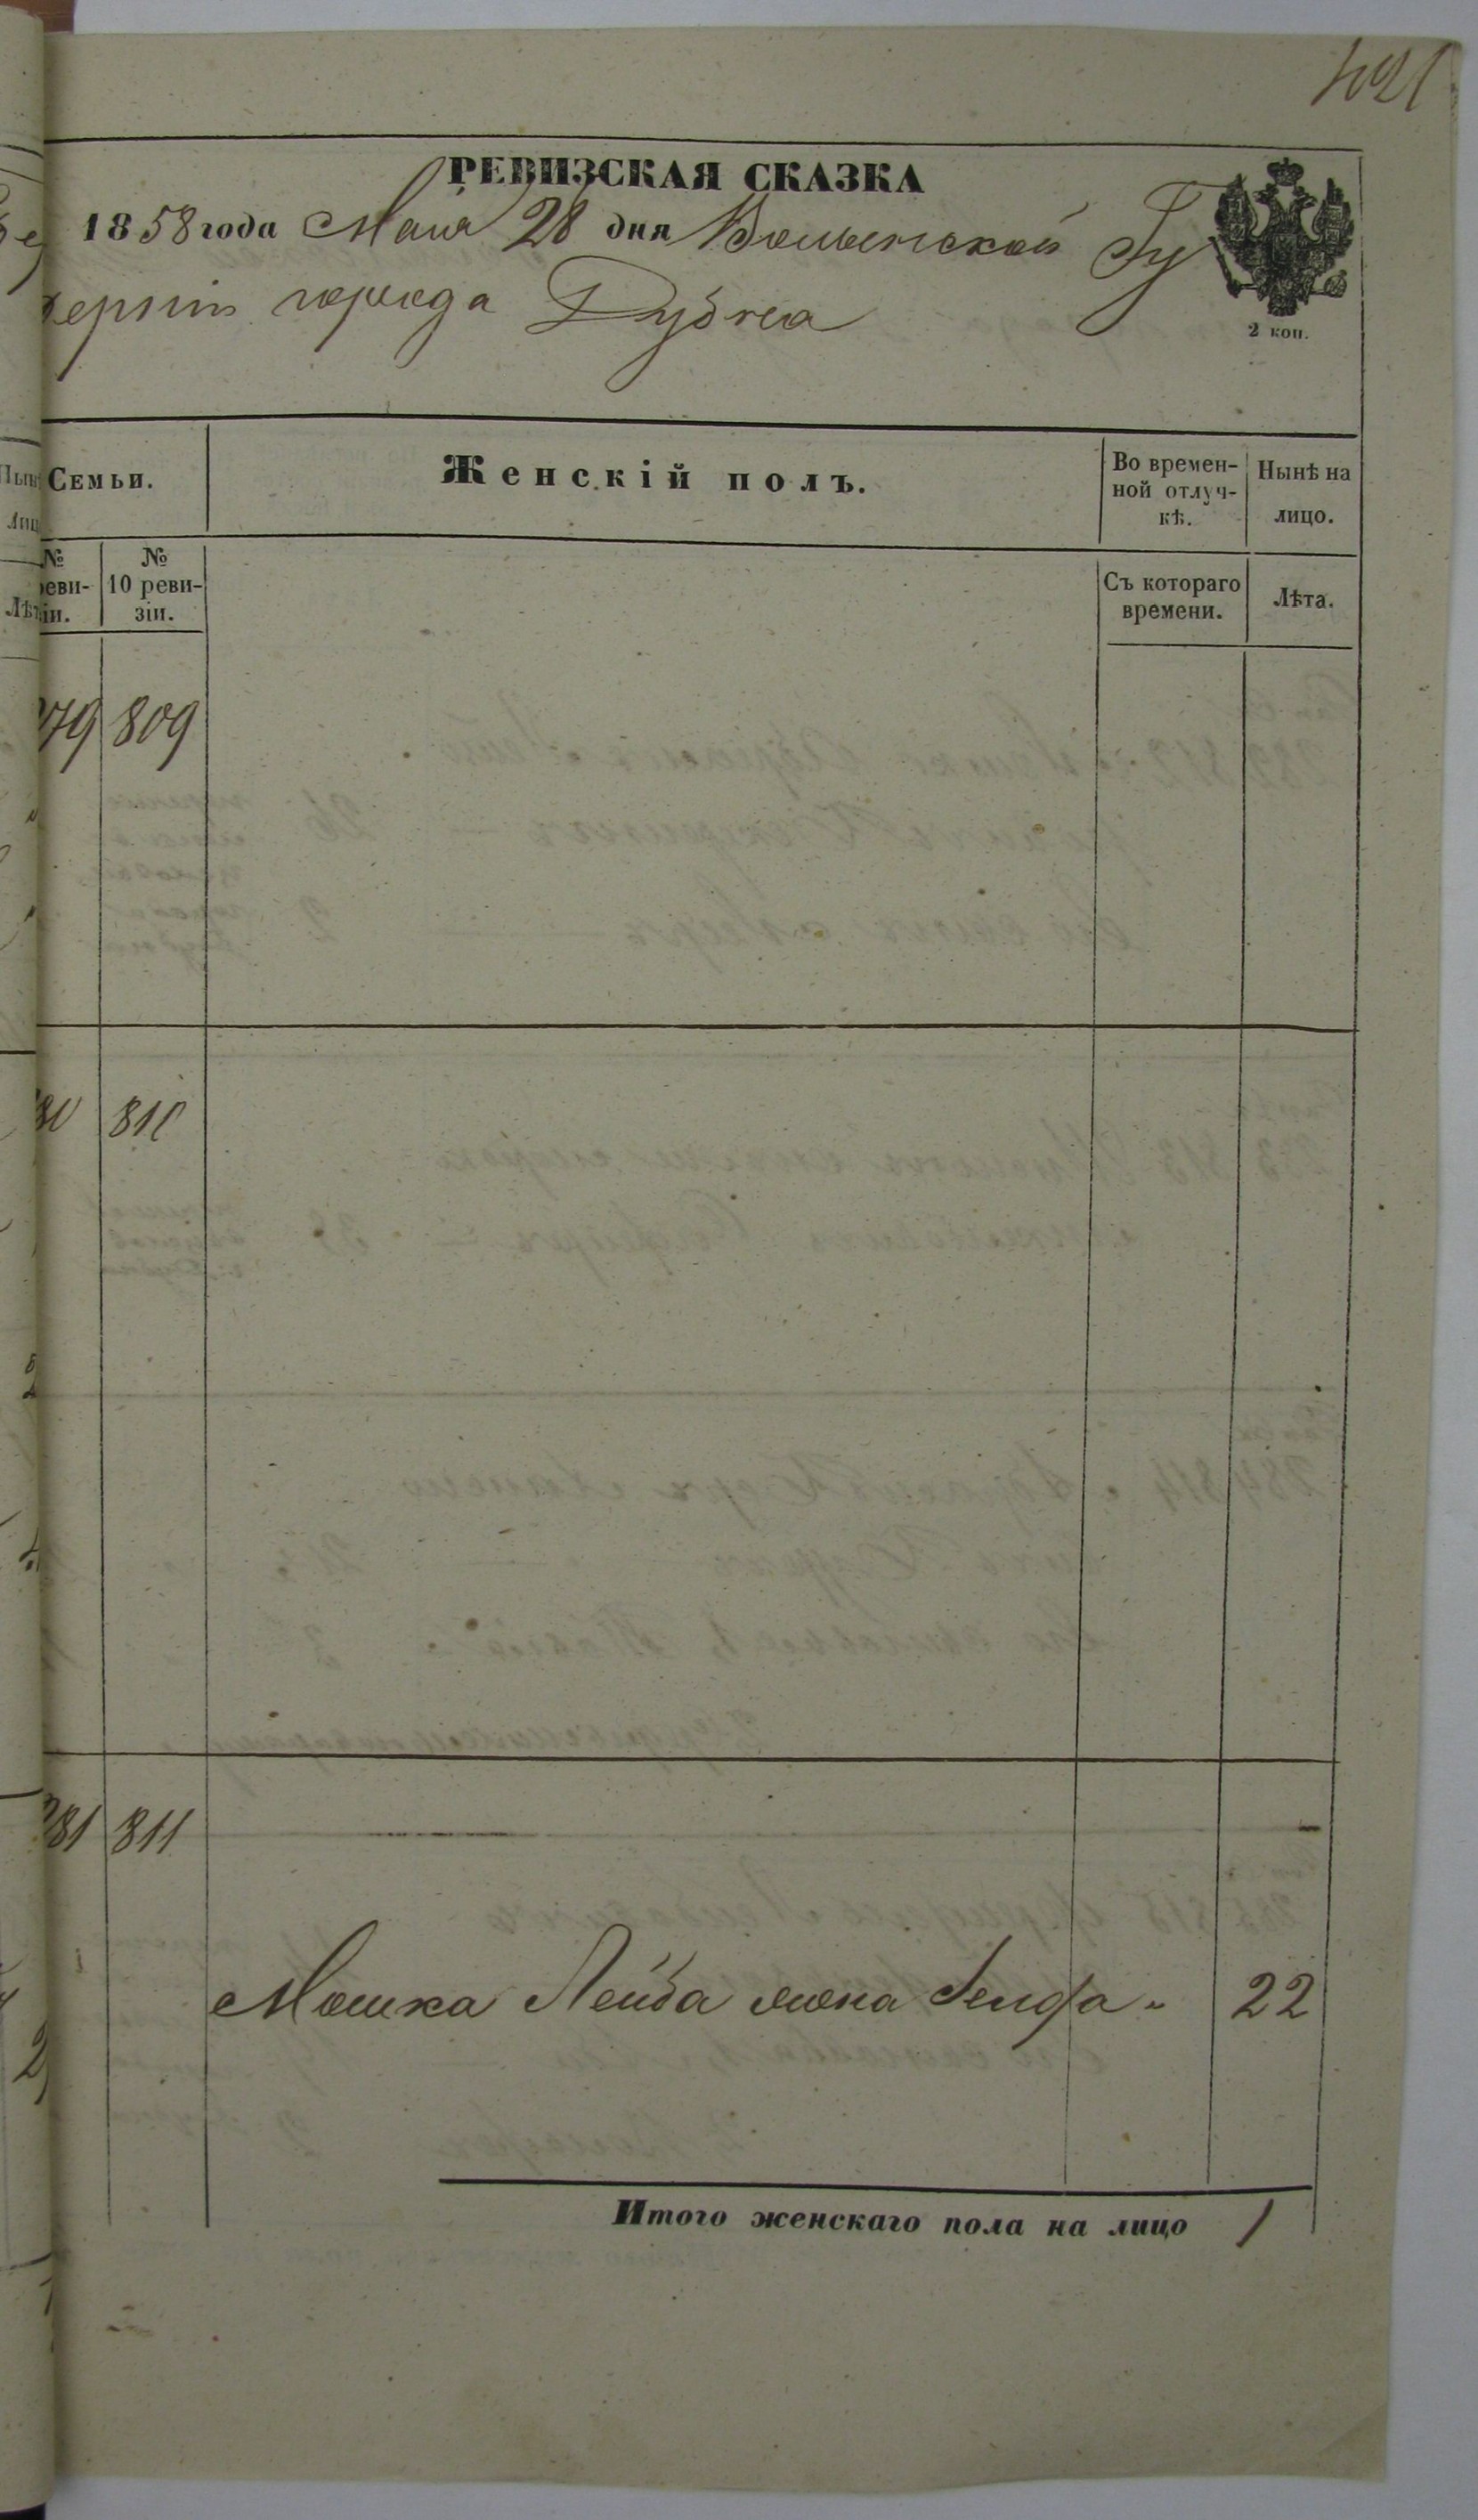 1021
РЕВИЗСКАЯ СКАЗКА
1858 года Мая 28 дня Волынской Гу
берніи города Дубна
2 коп.
Семьи.
Женскій полъ.
Во времен-
ной отлуч-
кѣ.
Нынѣ на
лицо.
№
реви-
зіи.
№
10 реви-
зіи.
Съ котораго
времени.
Лѣта.
279 809
280 810
281 811
Мошка Лейба жена Генфа 22
Итого женскаго пола на лицо 1